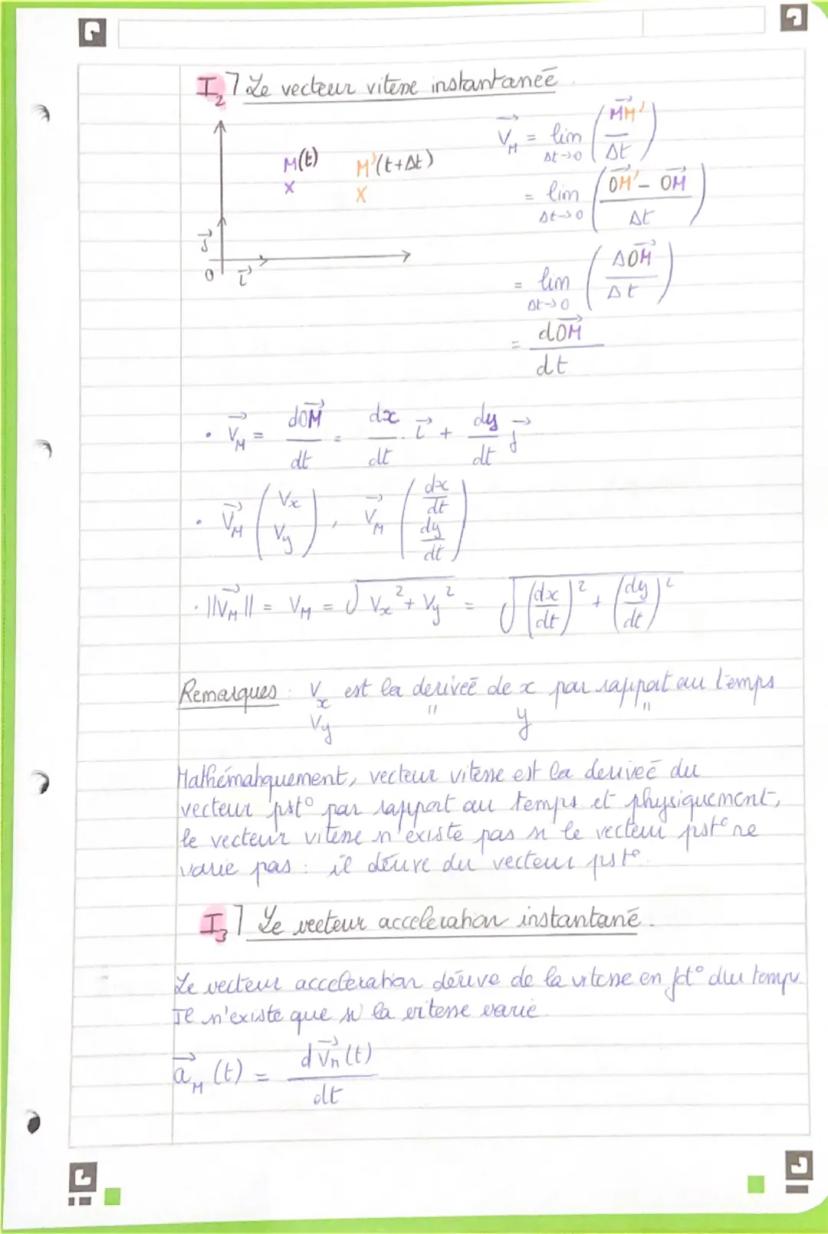 I₂] Le vecteur vitesse instantaneé
M(t) M'(t+Δt)
x x
j⃗
O i⃗
V⃗_M = lim_{Δt→0} (MM'⃗ / Δt)
= lim_{Δt→0} ((OM'⃗ - OM⃗) / Δt)
= lim_{Δt→0} (ΔOM⃗ / Δt)
= dOM⃗ / dt
• V⃗_M = dOM⃗/dt = dx/dt . i⃗ + dy/dt j⃗
• V⃗_M (V_x ; V_y) , V⃗_M (dx/dt ; dy/dt)
• ||V⃗_M|| = V_M = √(V_x² + V_y²) = √((dx/dt)² + (dy/dt)²)
Remarques : V_x est la deriveé de x par rapport au temps
V_y " y "
Mathématiquement, vecteur vitesse est la deriveé du
vecteur pst° par rapport au temps et physiquement,
le vecteur vitesse n'existe pas si le vecteur pst° ne
varie pas : il dérive du vecteur pst°.
I₃] Le vecteur acceleration instantané.
Le vecteur acceleration dérive de la vitesse en fct° du temps.
Il n'existe que si la vitesse varie.
a⃗_M (t) = dV⃗_M(t) / dt